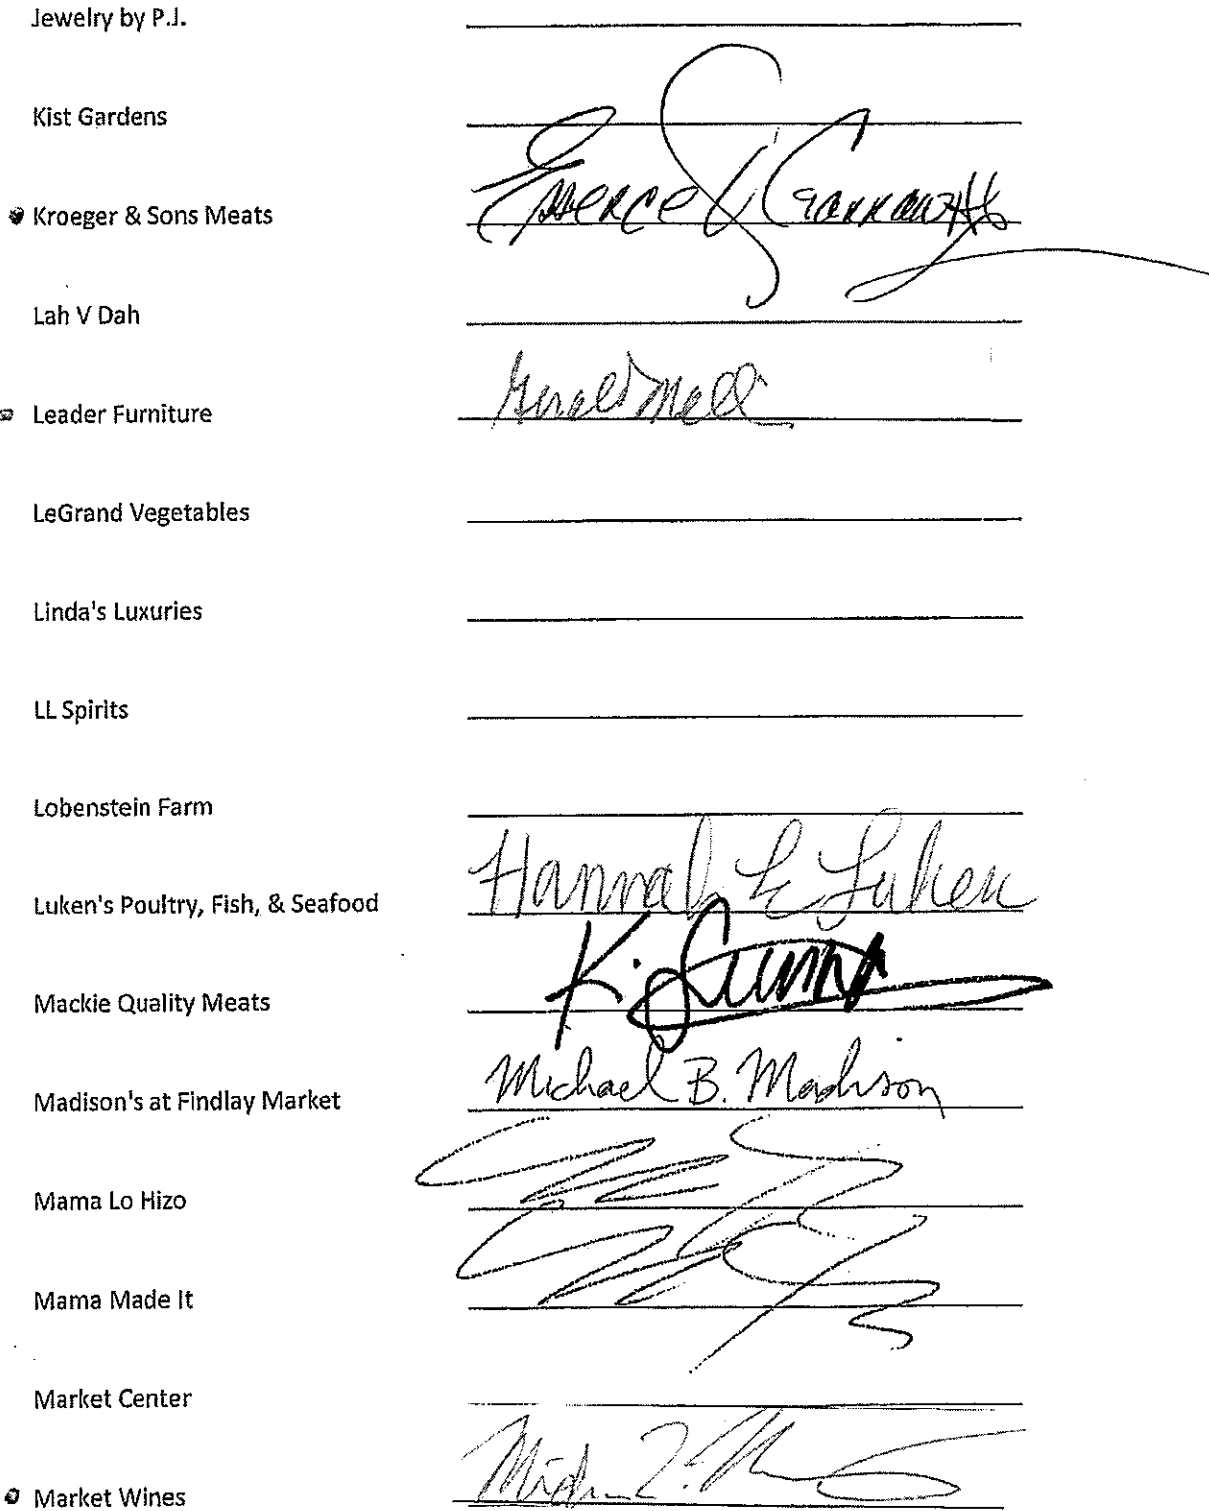 Jewelry by P.J.
Kist Gardens
Kroeger & Sons Meats
Lah V Dah
Leader Furniture
LeGrand Vegetables
Linda's Luxuries
LL Spirits
Lobenstein Farm
Luken's Poultry, Fish, & Seafood Hannah E Luken
Mackie Quality Meats K.
Madison's at Findlay Market Michael B. Madison
Mama Lo Hizo
Mama Made It
Market Center
Market Wines